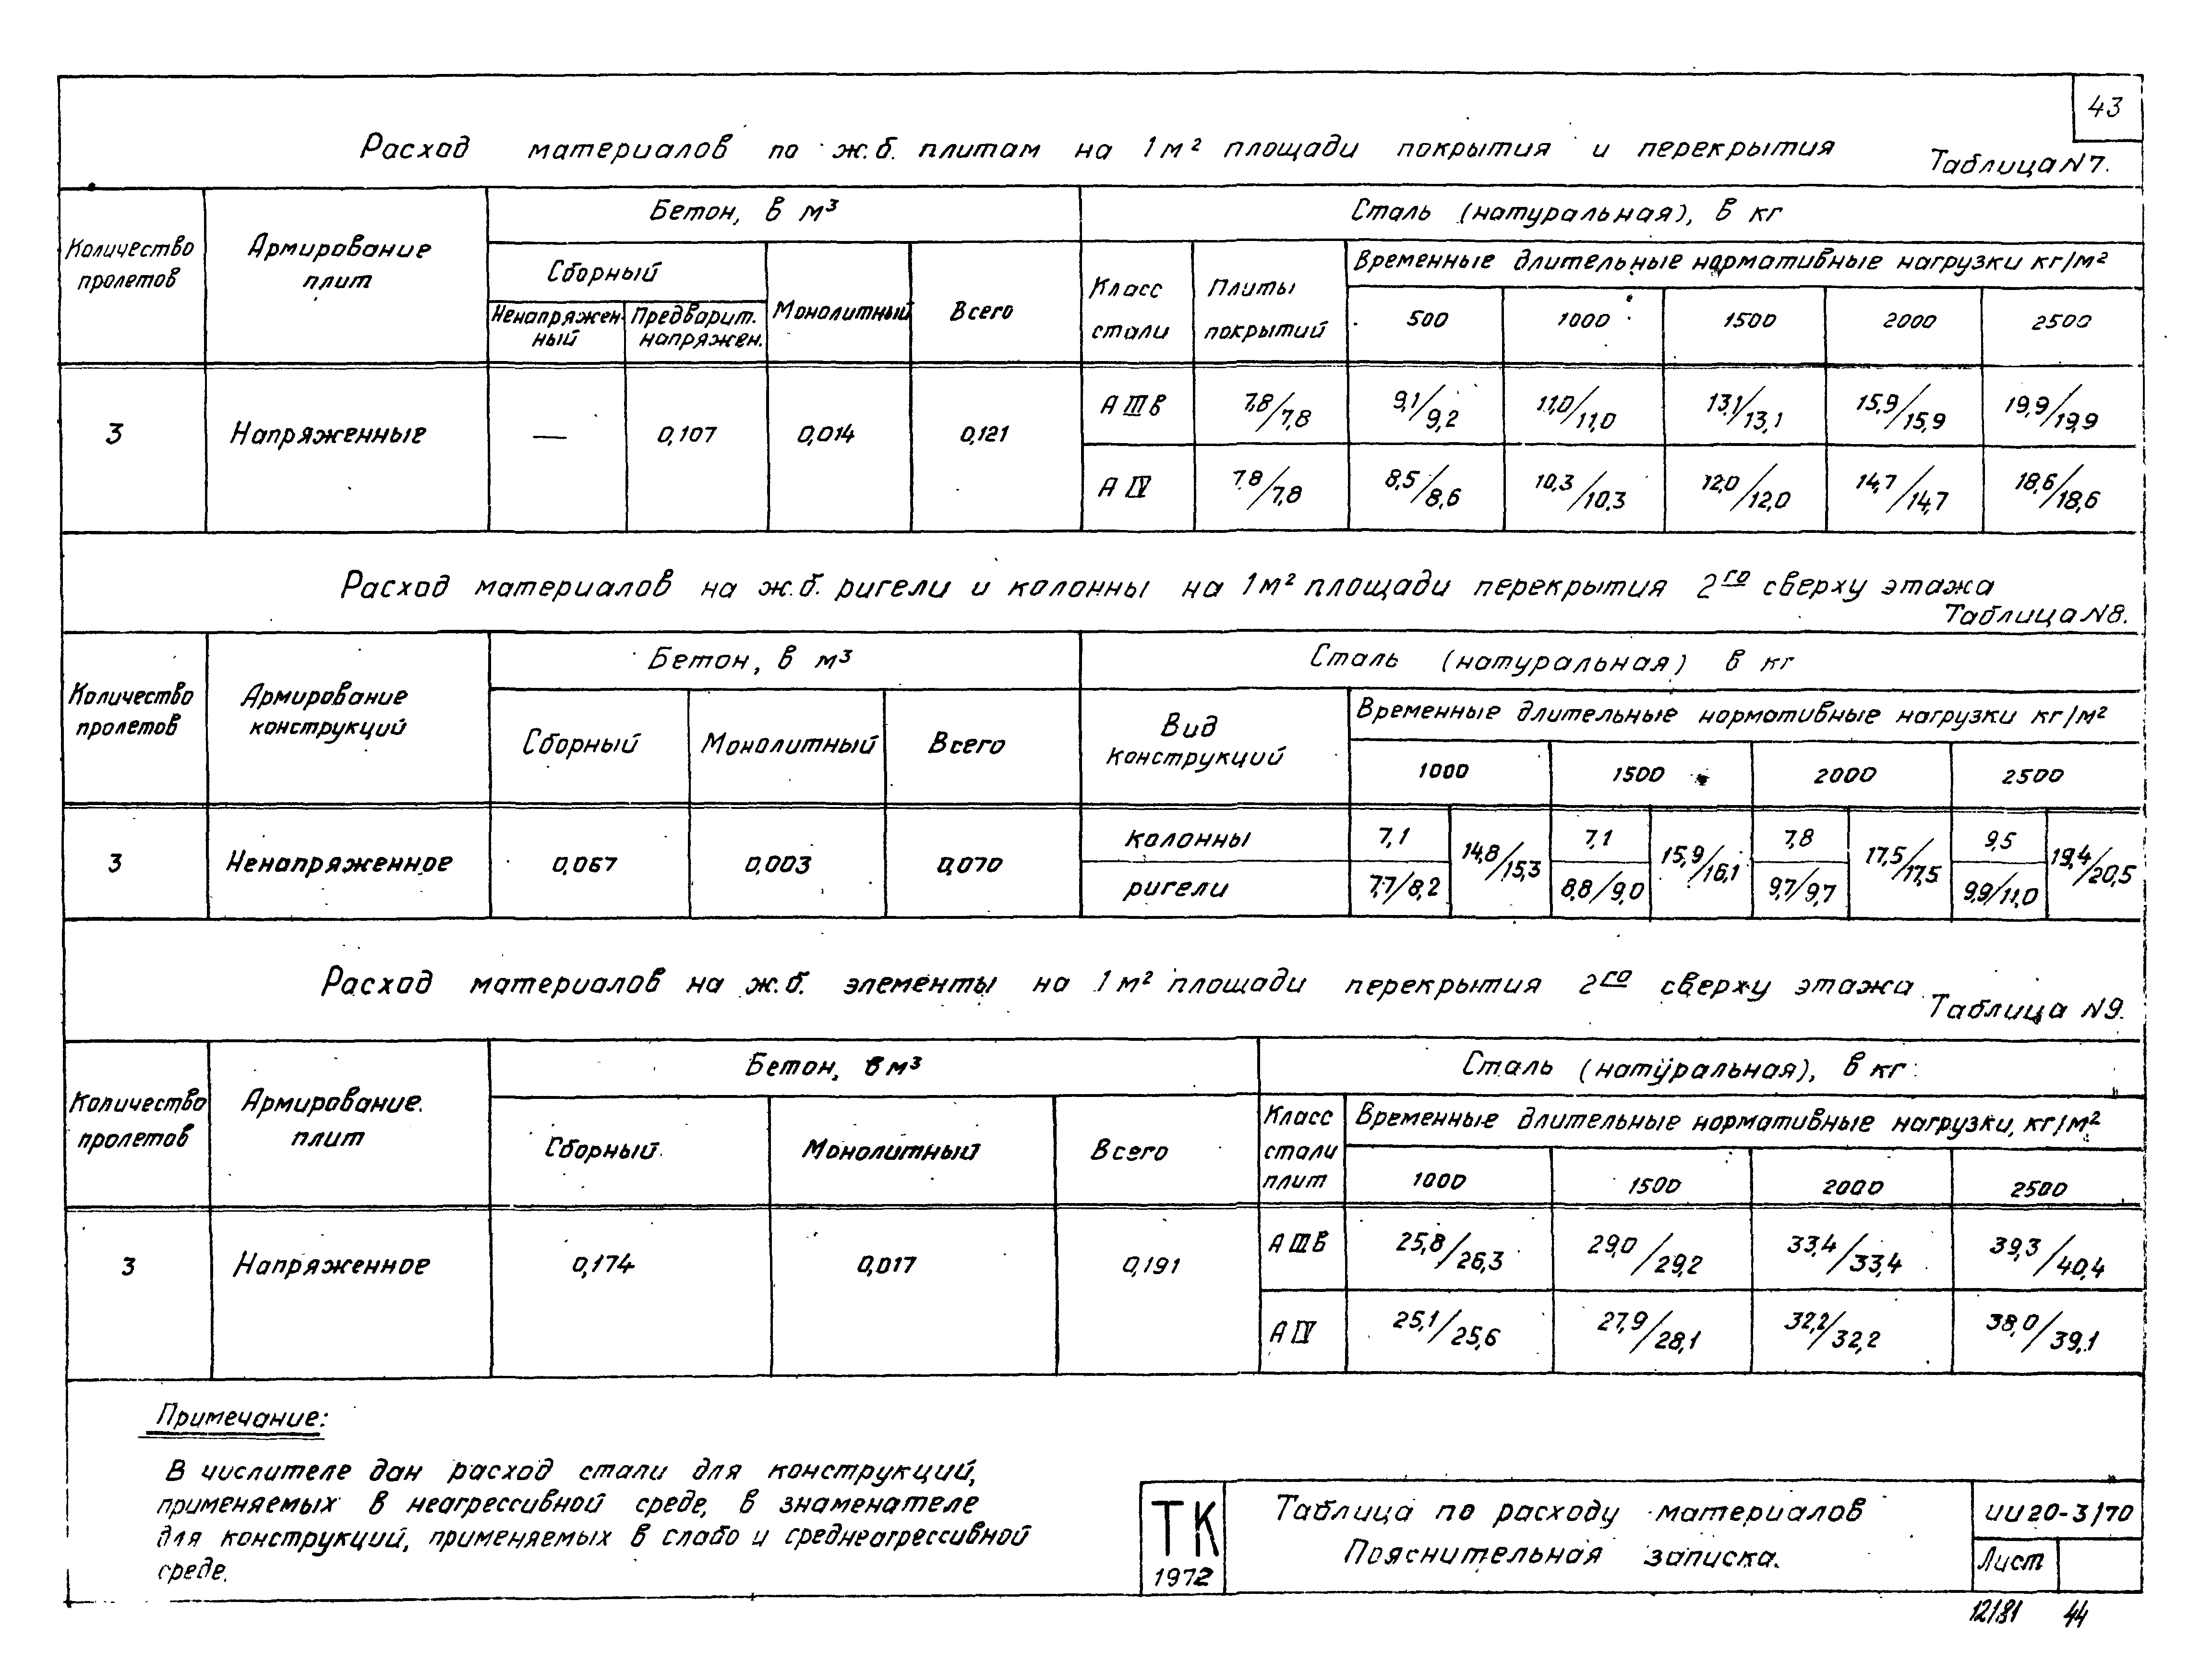 43
Расход материалов по ж.б. плитам на 1м² площади покрытия и перекрытия
Таблица N7.
Количество пролетов
Армирование плит
Бетон, в м³
Сталь (натуральная), в кг
Сборный
Ненапряжен-ный
Предварит. напряжен.
Монолитный
Всего
Класс стали
Плиты покрытий
Временные длительные нормативные нагрузки кг/м²
500 1000 1500 2000 2500
3 Напряженные — 0,107 0,014 0,121
А III в 7,8/7,8 9,1/9,2 11,0/11,0 13,1/13,1 15,9/15,9 19,9/19,9
А IV 7,8/7,8 8,5/8,6 10,3/10,3 12,0/12,0 14,7/14,7 18,6/18,6
Расход материалов на ж.б. ригели и колонны на 1м² площади перекрытия 2го сверху этажа
Таблица N8.
Количество пролетов
Армирование конструкций
Бетон, в м³
Сталь (натуральная) в кг
Сборный
Монолитный
Всего
Вид конструкций
Временные длительные нормативные нагрузки кг/м²
1000 1500 2000 2500
3 Ненапряженное 0,067 0,003 0,070
колонны 7,1 14,8/15,3 7,1 15,9/16,1 7,8 17,5/17,5 9,5 19,4/20,5
ригели 7,7/8,2 8,8/9,0 9,7/9,7 9,9/11,0
Расход материалов на ж.б. элементы на 1м² площади перекрытия 2го сверху этажа
Таблица N9.
Количество пролетов
Армирование плит
Бетон, в м³
Сталь (натуральная), в кг
Сборный
Монолитный
Всего
Класс стали плит
Временные длительные нормативные нагрузки, кг/м²
1000 1500 2000 2500
3 Напряженное 0,174 0,017 0,191
А III в 25,8/26,3 29,0/29,2 33,4/33,4 39,3/40,4
А IV 25,1/25,6 27,9/28,1 32,2/32,2 38,0/39,1
Примечание:
В числителе дан расход стали для конструкций,
применяемых в неагрессивной среде, в знаменателе
для конструкций, применяемых в слабо и среднеагрессивной
среде.
ТК
1972
Таблица по расходу материалов
Пояснительная записка.
ИИ20-3/70
Лист
12181 44